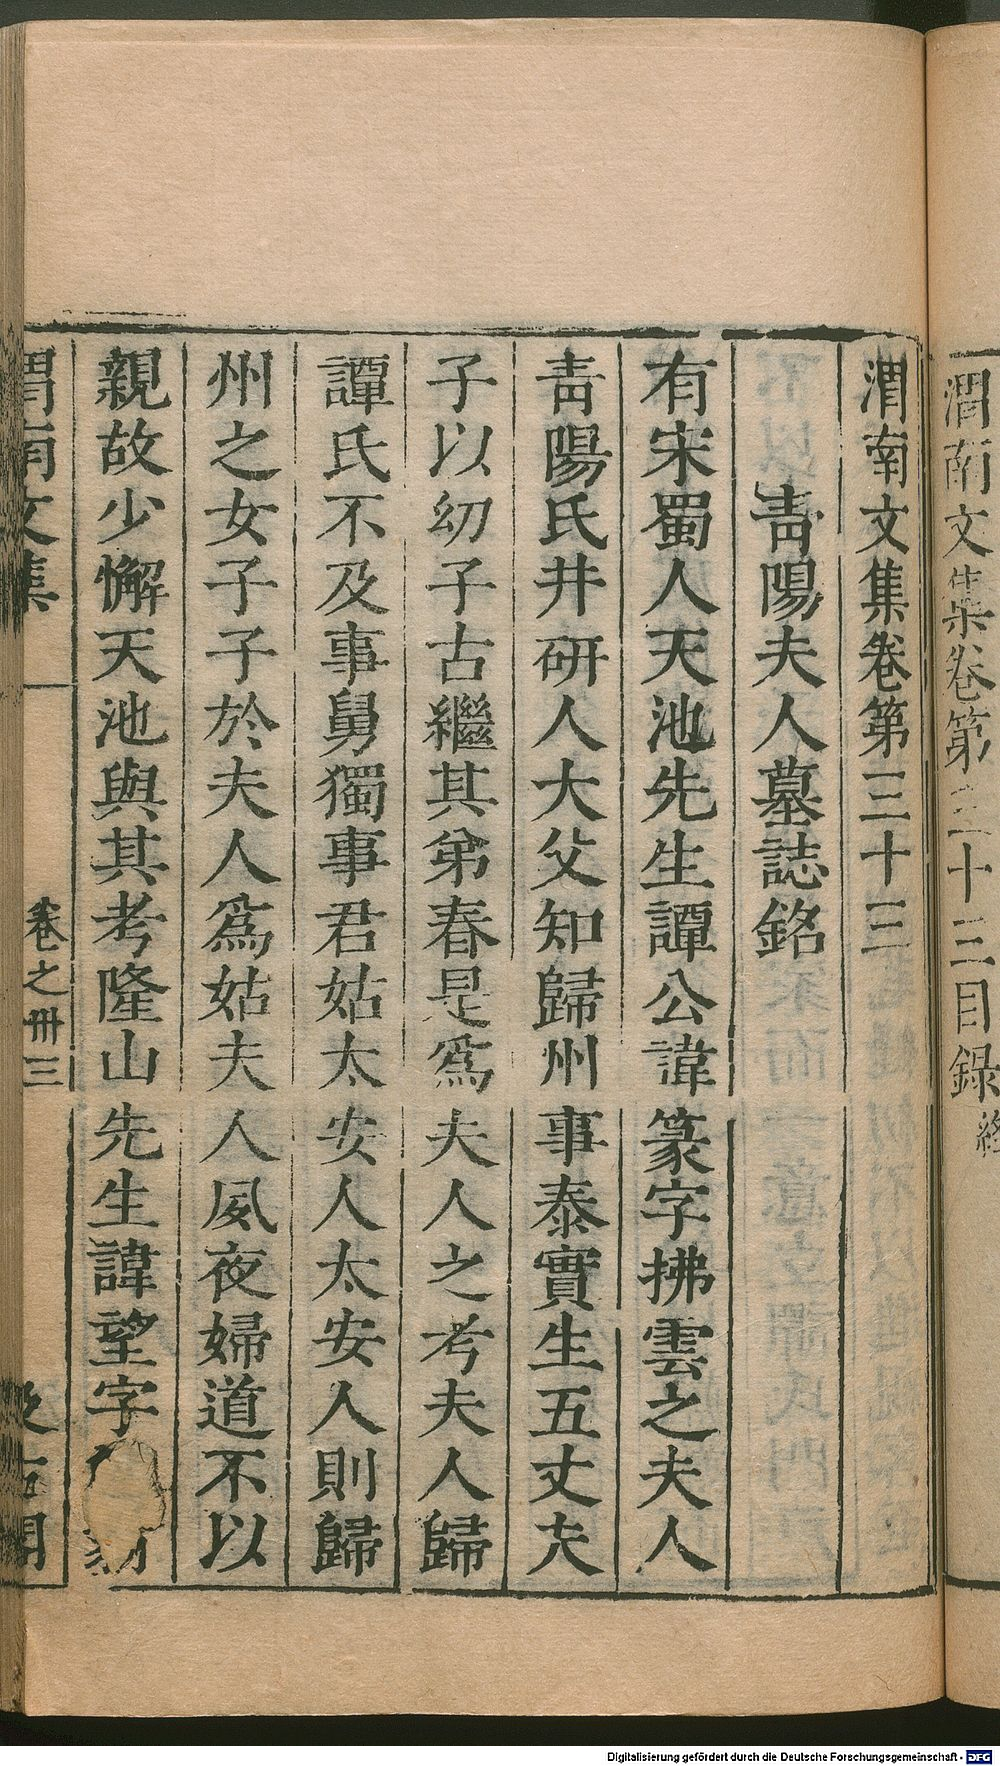 渭南文集卷第三十三目錄終
渭南文集卷第三十三
青陽夫人墓誌銘
有宋蜀人天池先生譚公諱篆字拂雲之夫人
青陽氏井研人大父知歸州事泰實生五丈夫
子以幼子古繼其弟春是爲夫人之考夫人歸
譚氏不及事舅獨事君姑太安人太安人則歸
州之女子子於夫人爲姑夫人夙夜婦道不以
親故少懈天池與其考隆山先生諱望字
渭南文集 卷之卅三
Digitalisierung gefördert durch die Deutsche Forschungsgemeinschaft - DFG